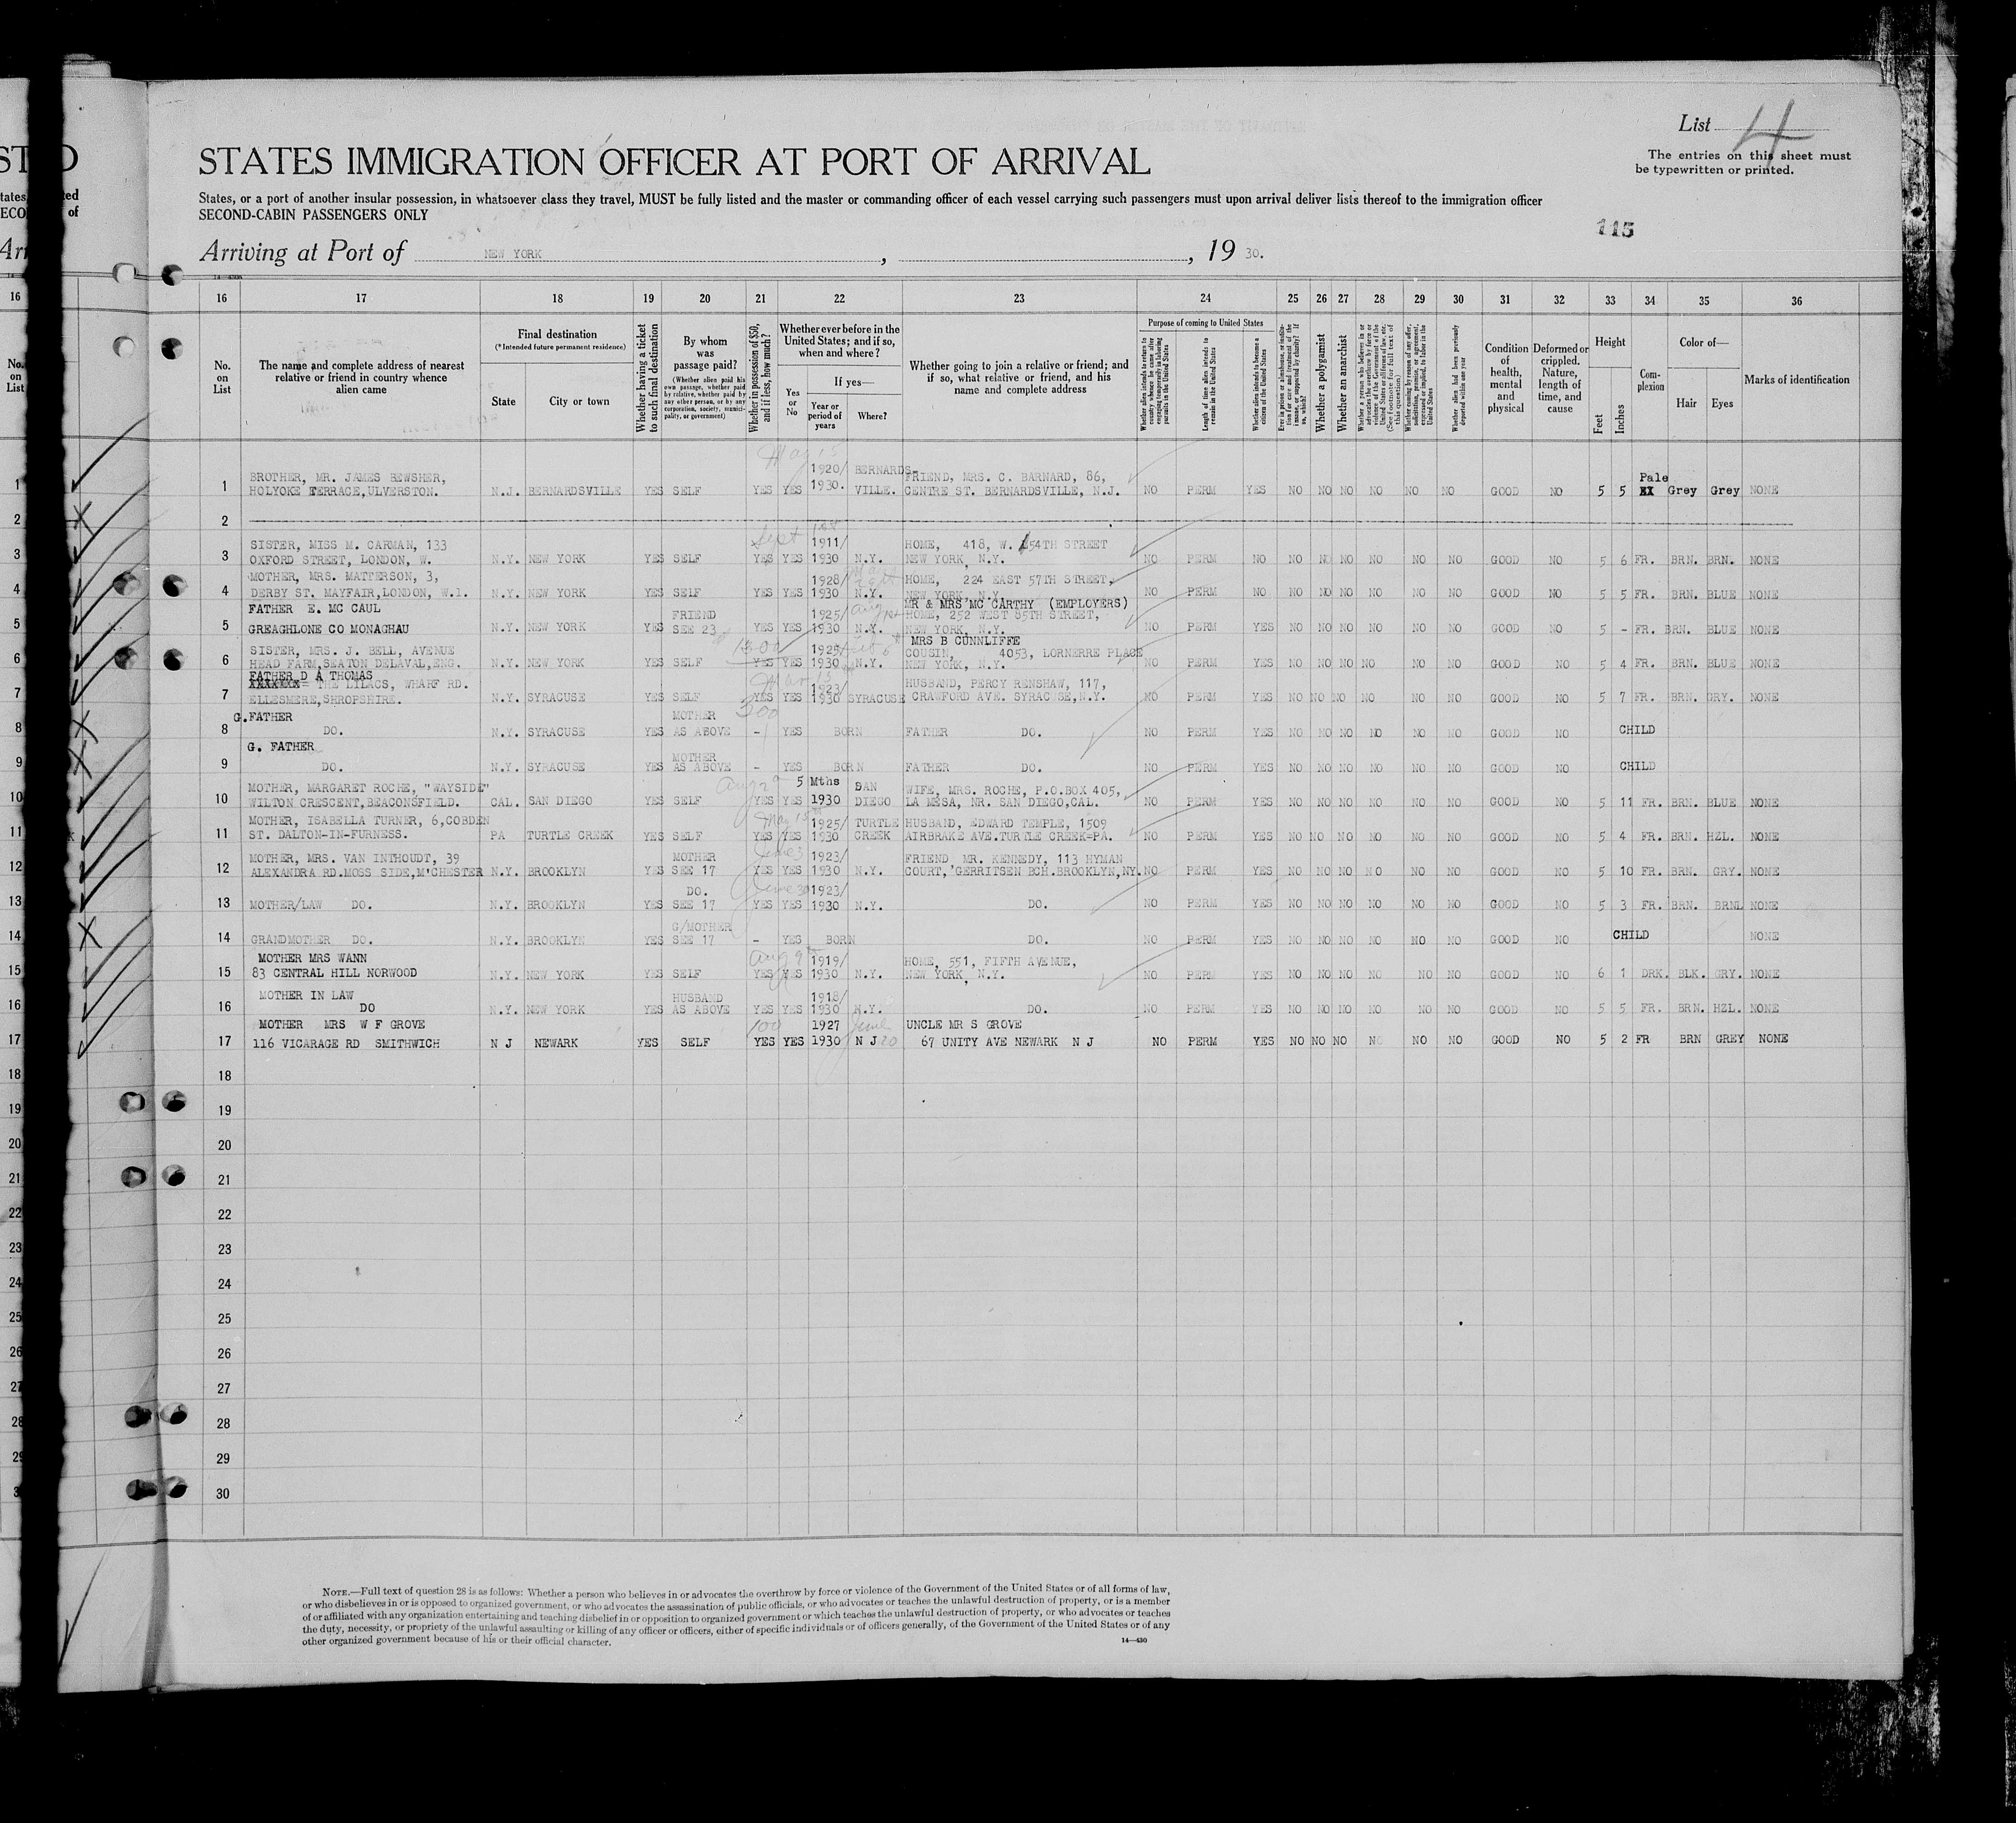 List 4
The entries on this sheet must
be typewritten or printed.
STATES IMMIGRATION OFFICER AT PORT OF ARRIVAL
States, or a port of another insular possession, in whatsoever class they travel, MUST be fully listed and the master or commanding officer of each vessel carrying such passengers must upon arrival deliver lists thereof to the immigration officer
SECOND-CABIN PASSENGERS ONLY
115
Arriving at Port of NEW YORK , , 19 30.
16 17 18 19 20 21 22 23 24 25 26 27 28 29 30 31 32 33 34 35 36
No. on List
The name and complete address of nearest relative or friend in country whence alien came
Final destination
(*Intended future permanent residence)
State
City or town
Whether having a ticket to such final destination
By whom was passage paid?
(Whether alien paid his own passage, whether paid by relative, whether paid by any other person, or by any corporation, society, municipality, or government)
Whether in possession of $50, and if less, how much?
Whether ever before in the United States; and if so, when and where?
Yes or No
If yes—
Year or period of years
Where?
Whether going to join a relative or friend; and if so, what relative or friend, and his name and complete address
Purpose of coming to United States
Whether alien intends to return to country whence he came after engaging temporarily in laboring pursuits in the United States
Length of time alien intends to remain in the United States
Whether alien intends to become a citizen of the United States
Ever in prison or almshouse, or institution for care and treatment of the insane, or supported by charity? If so, which?
Whether a polygamist
Whether an anarchist
Whether coming by reason of any offer, solicitation, promise, or agreement, expressed or implied, to labor in the United States
Whether alien had been previously deported within one year
Condition of health, mental and physical
Deformed or crippled. Nature, length of time, and cause
Height
Feet
Inches
Complexion
Color of—
Hair
Eyes
Marks of identification
1 BROTHER, MR. JAMES BEWSHER, HOLYOKE TERRACE,ULVERSTON. N.J. BERNARDSVILLE YES SELF YES YES 1920/ 1930. BERNARDS- VILLE. FRIEND, MRS. C. BARNARD, 86, CENTRE ST. BERNARDSVILLE, N.J. NO PERM YES NO NO NO NO NO NO GOOD NO 5 5 Pale Grey Grey NONE
2
3 SISTER, MISS M. CARMAN, 133 OXFORD STREET, LONDON, W. N.Y. NEW YORK YES SELF YES YES 1911/ 1930 N.Y. HOME, 418, W. 154TH STREET NEW YORK, N.Y. NO PERM NO NO NO NO NO NO NO GOOD NO 5 6 FR. BRN. BRN. NONE
4 MOTHER, MRS. MATTERSON, 3, DERBY ST. MAYFAIR,LONDON, W.1. N.Y. NEW YORK YES SELF YES YES 1928/ 1930 N.Y. HOME, 224 EAST 57TH STREET, NEW YORK, N.Y. NO PERM NO NO NO NO NO NO NO GOOD NO 5 5 FR. BRN. BLUE NONE
5 FATHER E. MC CAUL GREAGHLONE CO MONAGHAU N.Y. NEW YORK YES FRIEND SEE 23 YES YES 1925/ 1930 N.Y. MR & MRS MC CARTHY (EMPLOYERS) HOME, 252 WEST 85TH STREET, NEW YORK, N.Y. NO PERM YES NO NO NO NO NO NO GOOD NO 5 - FR. BRN. BLUE NONE
6 SISTER, MRS. J. BELL, AVENUE HEAD FARM,SEATON DELAVAL,ENG. N.Y. NEW YORK YES SELF YES YES 1925/ 1930 N.Y. MRS B CUNNLIFFE COUSIN, 4053, LORNERRE PLACE NEW YORK, N.Y. NO PERM YES NO NO NO NO NO NO GOOD NO 5 4 FR. BRN. BLUE NONE
7 FATHER D A THOMAS XXXXXXX= THE LILACS, WHARF RD. ELLESMERE,SHROPSHIRE. N.Y. SYRACUSE YES SELF YES YES 1923/ 1930 SYRACUSE HUSBAND, PERCY RENSHAW, 117, CRAWFORD AVE. SYRACUSE,N.Y. NO PERM YES NO NO NO NO NO NO GOOD NO 5 7 FR. BRN. GRY. NONE
8 G.FATHER DO. N.Y. SYRACUSE YES MOTHER AS ABOVE - YES BORN FATHER DO. NO PERM YES NO NO NO NO NO NO GOOD NO CHILD
9 G. FATHER DO. N.Y. SYRACUSE YES MOTHER AS ABOVE - YES BORN FATHER DO. NO PERM YES NO NO NO NO NO NO GOOD NO CHILD
10 MOTHER, MARGARET ROCHE, "WAYSIDE" WILTON CRESCENT,BEACONSFIELD. CAL. SAN DIEGO YES SELF YES YES 5 Mths 1930 SAN DIEGO WIFE, MRS. ROCHE, P.O.BOX 405, LA MESA, NR. SAN DIEGO,CAL. NO PERM YES NO NO NO NO NO NO GOOD NO 5 11 FR. BRN. BLUE NONE
11 MOTHER, ISABELLA TURNER, 6,COBDEN ST. DALTON-IN-FURNESS. PA TURTLE CREEK YES SELF YES YES 1925/ 1930 TURTLE CREEK HUSBAND, EDWARD TEMPLE, 1509 AIRBRAKE AVE.TURTLE CREEK=PA. NO PERM YES NO NO NO NO NO NO GOOD NO 5 4 FR. BRN. HZL. NONE
12 MOTHER, MRS. VAN INTHOUDT, 39 ALEXANDRA RD.MOSS SIDE,M'CHESTER N.Y. BROOKLYN YES MOTHER SEE 17 YES YES 1923/ 1930 N.Y. FRIEND MR. KENNEDY, 113 HYMAN COURT, GERRITSEN BCH.BROOKLYN,NY. NO PERM YES NO NO NO NO NO NO GOOD NO 5 10 FR. BRN. GRY. NONE
13 MOTHER/LAW DO. N.Y. BROOKLYN YES DO. SEE 17 YES YES 1923/ 1930 N.Y. DO. NO PERM YES NO NO NO NO NO NO GOOD NO 5 3 FR. BRN. BRN. NONE
14 GRANDMOTHER DO. N.Y. BROOKLYN YES G/MOTHER SEE 17 - YES BORN DO. NO PERM YES NO NO NO NO NO NO GOOD NO CHILD NONE
15 MOTHER MRS WANN 83 CENTRAL HILL NORWOOD N.Y. NEW YORK YES SELF YES YES 1919/ 1930 N.Y. HOME, 551, FIFTH AVENUE, NEW YORK, N.Y. NO PERM YES NO NO NO NO NO NO GOOD NO 6 1 DRK. BLK. GRY. NONE
16 MOTHER IN LAW DO N.Y. NEW YORK YES HUSBAND AS ABOVE YES YES 1918/ 1930 N.Y. DO. NO PERM YES NO NO NO NO NO NO GOOD NO 5 5 FR. BRN. HZL. NONE
17 MOTHER MRS W F GROVE 116 VICARAGE RD SMITHWICH N J NEWARK YES SELF 100 YES YES 1927 1930 N J June 20 UNCLE MR S GROVE 67 UNITY AVE NEWARK N J NO PERM YES NO NO NO NO NO NO GOOD NO 5 2 FR BRN GREY NONE
18
19
20
21
22
23
24
25
26
27
28
29
30
NOTE.—Full text of question 28 is as follows: Whether a person who believes in or advocates the overthrow by force or violence of the Government of the United States or of all forms of law,
or who disbelieves in or is opposed to organized government, or who advocates the assassination of public officials, or who advocates or teaches the unlawful destruction of property, or is a member
of or affiliated with any organization entertaining and teaching disbelief in or opposition to organized government or which teaches the unlawful destruction of property, or who advocates or teaches
the duty, necessity, or propriety of the unlawful assaulting or killing of any officer or officers, either of specific individuals or of officers generally, of the Government of the United States or of any
other organized government because of his or their official character.
14—430